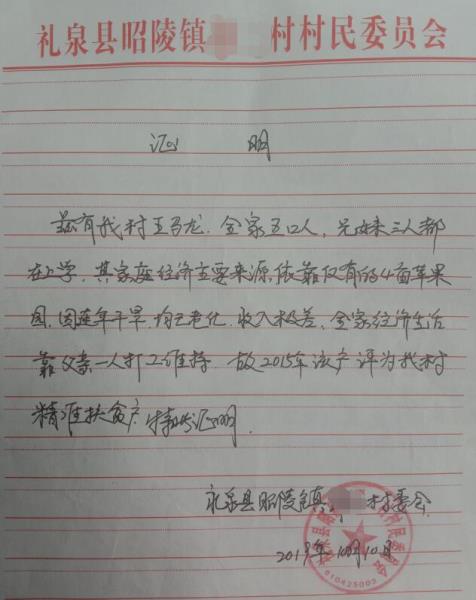 礼泉县昭陵镇 村村民委员会
证 明
兹有我村王马龙，全家五口人，兄妹三人都
在上学，其家庭经济主要来源，依靠仅有的4亩苹果
园，因连年干旱，均已老化，收入极差，全家经济生活
靠父亲一人打工维持。故2015年该户评为我村
精准扶贫户，特此证明。
礼泉县昭陵镇 村委会
2019年10月10日